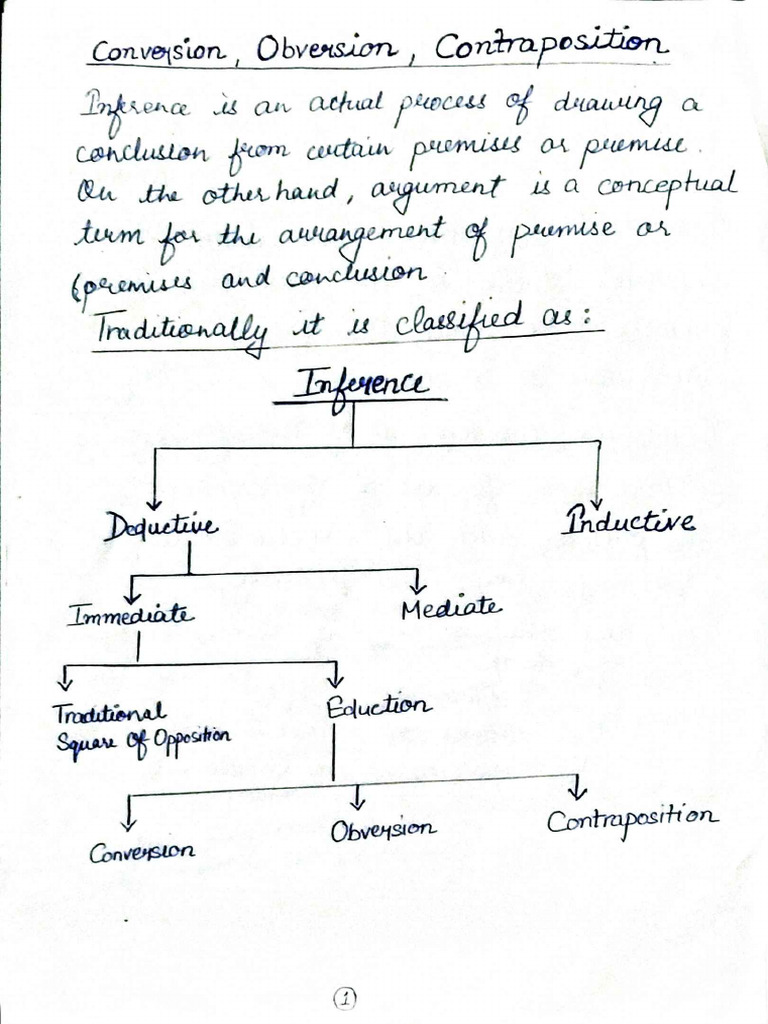 Conversion, Obversion, Contraposition
Inference is an actual process of drawing a
conclusion from certain premises or premise.
On the other hand, argument is a conceptual
term for the arrangement of premise or
premises and conclusion.
Traditionally it is classified as:
Inference
Deductive Inductive
Immediate Mediate
Traditional Eduction
Square Of Opposition
Conversion Obversion Contraposition
1